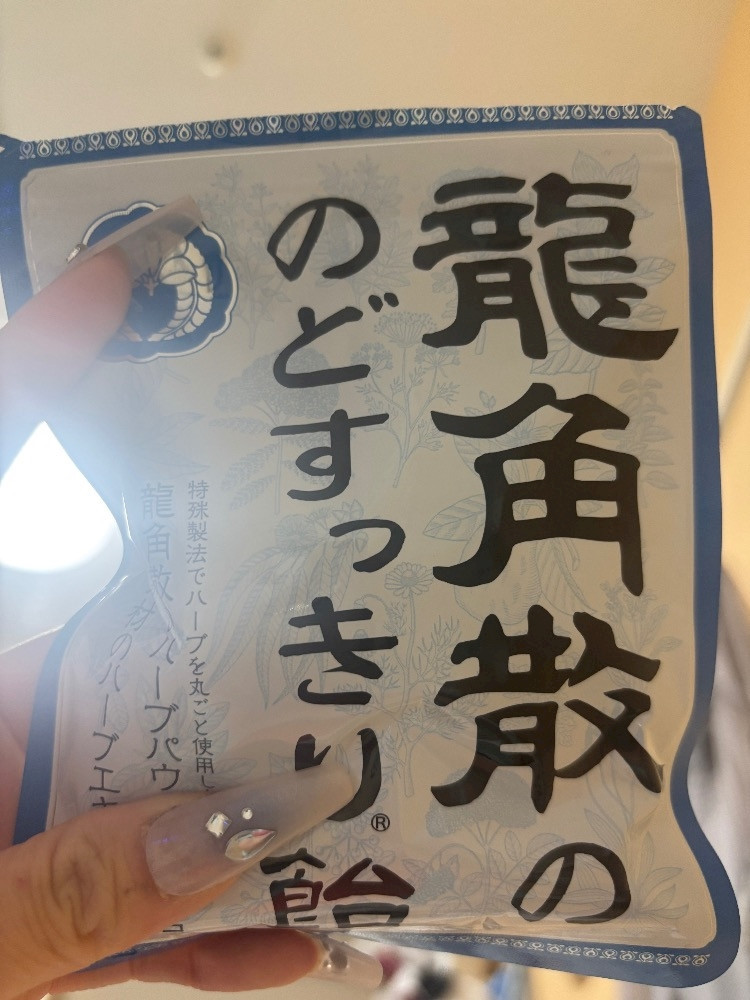 龍角散の
のどすっきり®飴
特殊製法でハーブを丸ごと使用し
龍角散 ハーブパウ
のハーブエキ